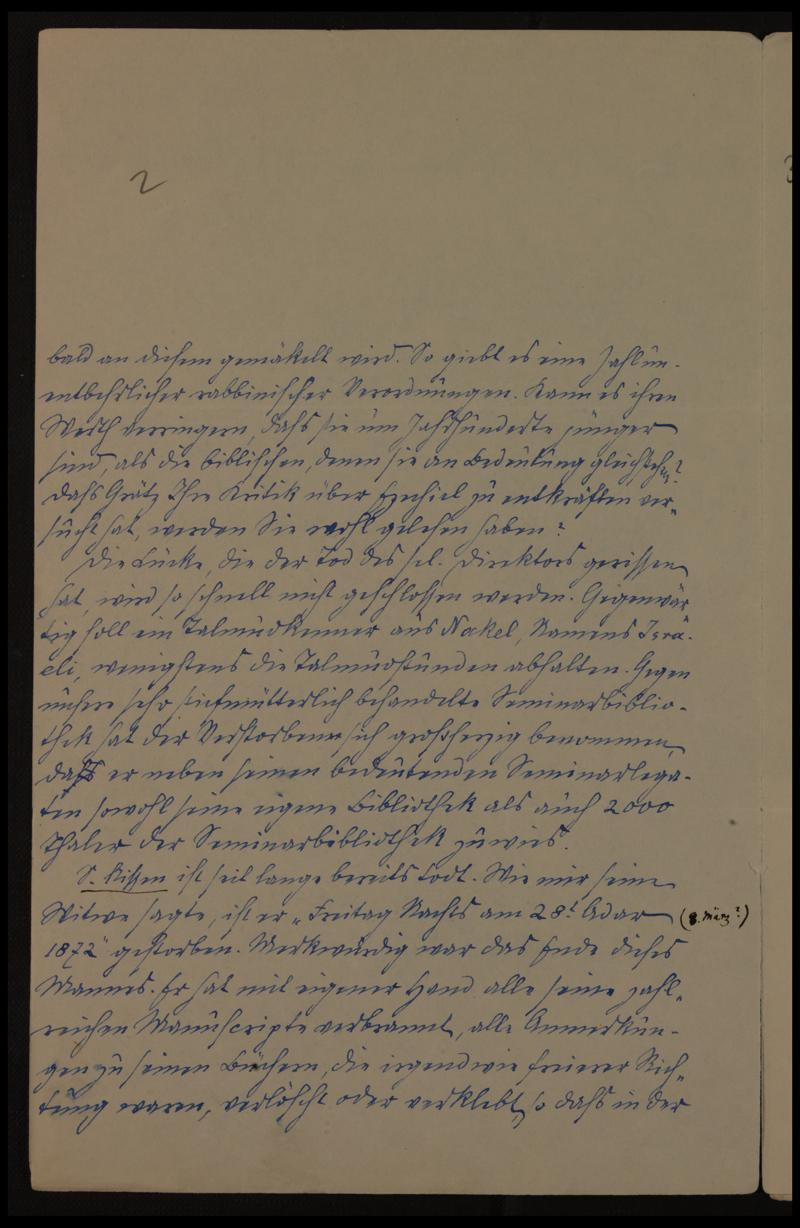 2
bald an diesem gemäkelt wird. So giebt es eine Zahl un-
entbehrlicher rabbinischer Verordnungen. Kann es ihren
Werth verringern, dass sie um Jahrhunderte jünger
sind, als die biblischen, denen sie an Bedeutung gleichstehn?
Dass Grätz Ihre Kritik über Ezechiel zu entkräften ver-
sucht hat, werden Sie wohl gelesen haben?
Die Lücke, die der Tod des sel. Direktors gerissen
hat, wird so schnell nicht geschlossen werden. Gegenwär-
tig soll ein Talmudkenner aus Nakel, Namens Isra-
eli, wenigstens die Talmudstunden abhalten. Gegen
unsere sehr stiefmütterlich behandelte Seminarbiblio-
thek hat der Verstorbene sich grossherzig benommen,
dass er neben seinen bedeutenden Seminarlega-
ten sowohl seine eigene Bibliothek als auch 2000
Thaler der Seminarbibliothek zuwies.
S. ist seit lange bereits todt. Wie mir seine
Witwe sagte, ist er „Freitag Nachts am 28t Adar (8. März?)
1872" gestorben. Merkwürdig war das Ende dieses
Mannes. Er hat mit eigener Hand alle seine zahl-
reichen Manuscripte verbrannt, alle Anmerkun-
gen zu seinen Büchern, die irgendwie freierer Rich-
tung waren, verlöscht oder verklebt, so dass in der